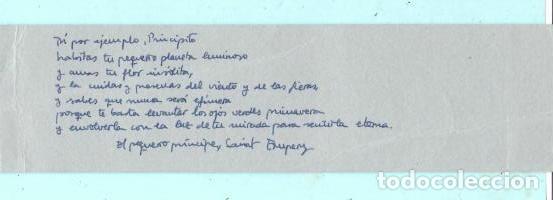 Tú por ejemplo, Principito
habitas tu pequeño planeta luminoso
y amas tu flor insólita,
y la cuidas y preservas del viento y de las fieras,
y sabes que nunca será efímera
porque te basta levantar los ojos verdes primavera
y envolverla con la luz de tu mirada para sentirla eterna.
El pequeño príncipe, Saint Exupery
todocoleccion